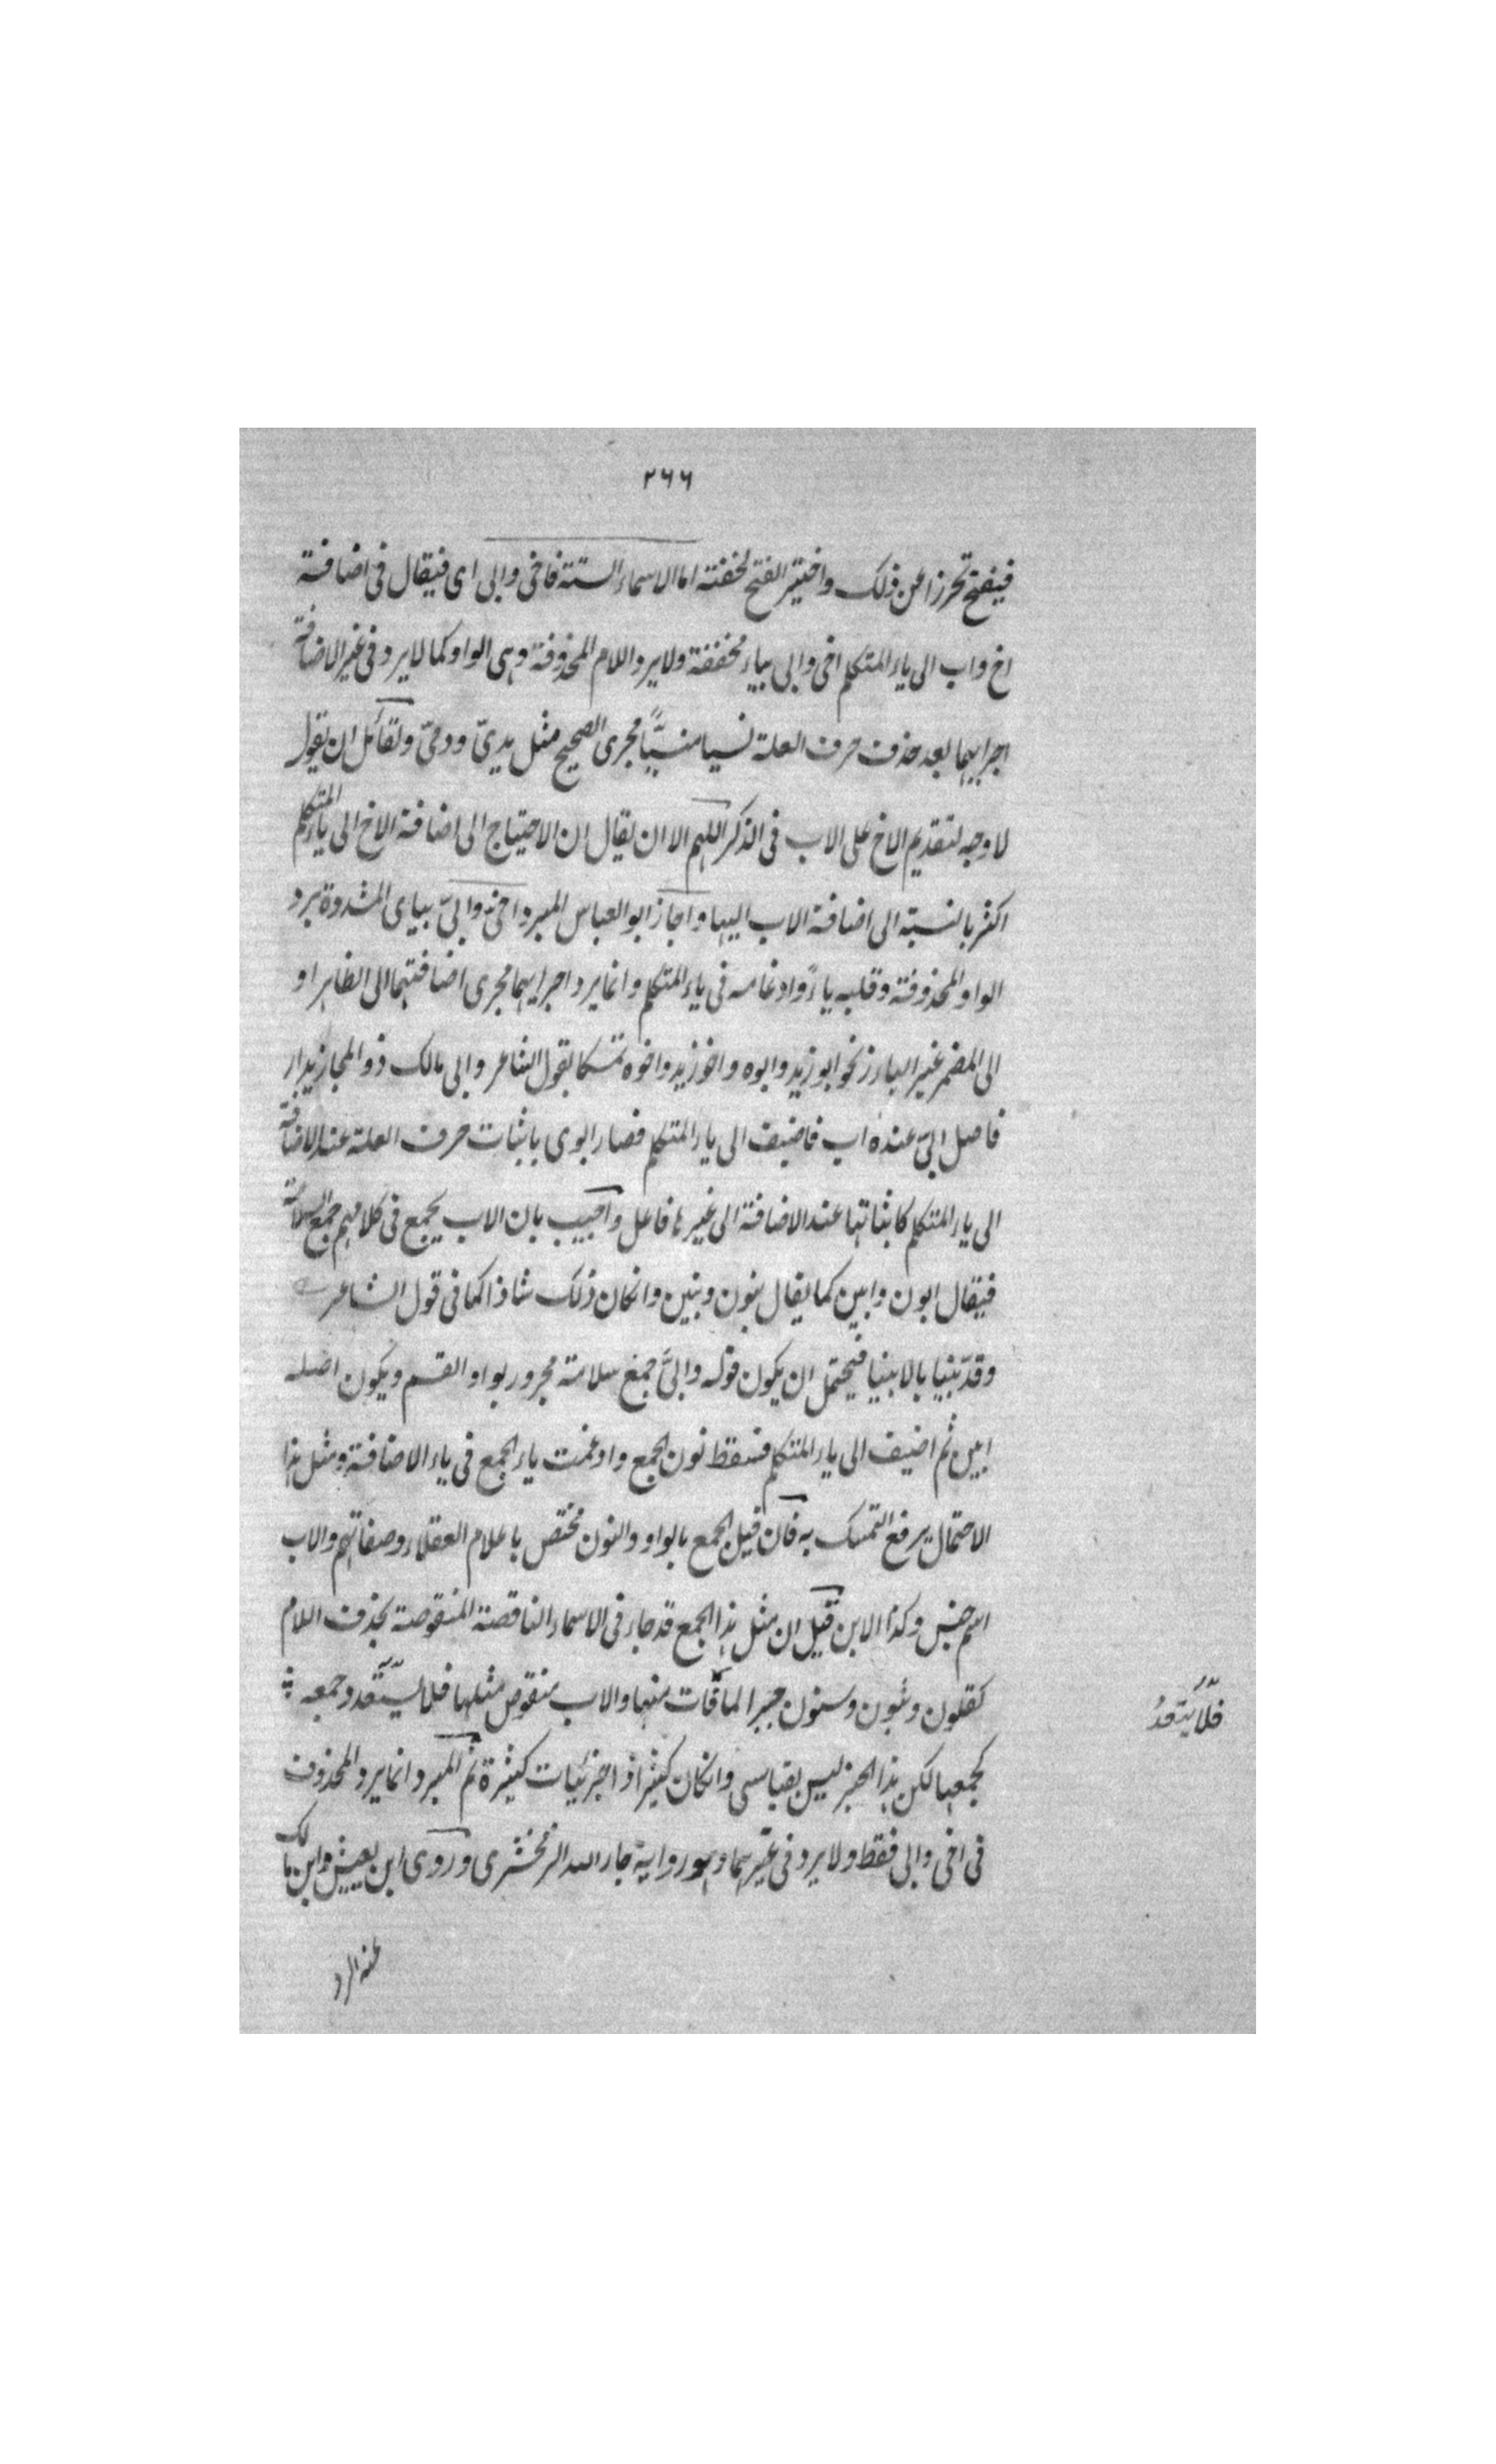 ٢٦٦
فيفتح تحرزا عن ذلك واختير الفتح لخفته اما الاسماء الستة فاخى وابى اى فيقال فى اضافة
اخ واب الى ياء المتكلم اخى وابى بياء مخففة ولا يرد اللام المحذوفة وهى الواو كما لا يرد فى غير الاضافة
اجرايهما بعد حذف حرف العلة نسيا منسيًّا مجرى الصحيح مثل يدىّ ودمىّ ولقائل ان يقول
لا وجه لتقديم الاخ على الاب فى الذكر اللهم الا ان يقال ان الاحتياج الى اضافة الاخ الى ياء المتكلم
اكثر بالنسبة الى اضافة الاب اليها واجاز ابو العباس المبرد اخىّ وابىّ بياى المشدوة برد
الواو المحذوفة وقلبه ياءً وادغامه فى ياء المتكلم وانما يرد اجرايهما مجرى اضافتهما الى الظاهر او
الى المضمر غير البارز نحو ابو زيد وابوه واخو زيد واخوه تمسكا بقول الشاعر وابى مالك ذو المجاز بدار
فاصل ابىّ عنده اب فاضيف الى ياء المتكلم فصار ابوى باثبات حرف العلة عند الاضافة
الى ياء المتكلم كاثباتها عند الاضافة الى غيرها فاعل واجيب بان الاب يجمع فى كلامهم جمع السلامة
فيقال ابون وابين كما يقال بنون وبنين وانكان ذلك شاذا كما فى قول الشاعر
وقد بنينا بالابينا فيحتمل ان يكون قوله وابىَّ جمع سلامة مجرور بواو القسم ويكون اصله
ابين ثم اضيف الى ياء المتكلم فسقط نون الجمع وادغمت ياء الجمع فى ياء الاضافة ومثل هذا
الاحتمال يرفع التمسك به فان قيل الجمع بالواو والنون مختص باعلام العقلاء وصفاتهم والاب
اسم جنس وكذا الابن قيل ان مثل هذا الجمع قد جاء فى الاسماء الناقصة المنقوصة بحذف اللام
كقلون وثبون وسنون جبرا لما فات منها والاب منقوص مثلها فلا يستقد وجمعه
كجمعها لكن هذا الجبر ليس بقياسى وانكان كثيرا ذا جزئيات كثيرة ثم المبرد انما يرد المحذوف
فى اخى وابى فقط ولا يرد فى غيرهما وهو رواية جار الله الزمخشرى وروى ابن يعيش وابن مالك
عنه الرد